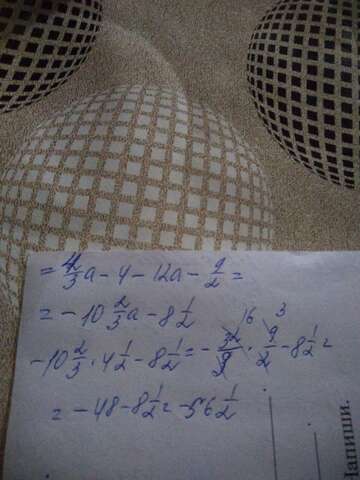 = 4/3 a - 4 - 12a - 9/2 =
= - 10 2/3 a - 8 1/2
-10 2/3 · 4 1/2 - 8 1/2 = - 32/3 · 9/2 - 8 1/2 =
16 3
= - 48 - 8 1/2 = -56 1/2
Напиши.